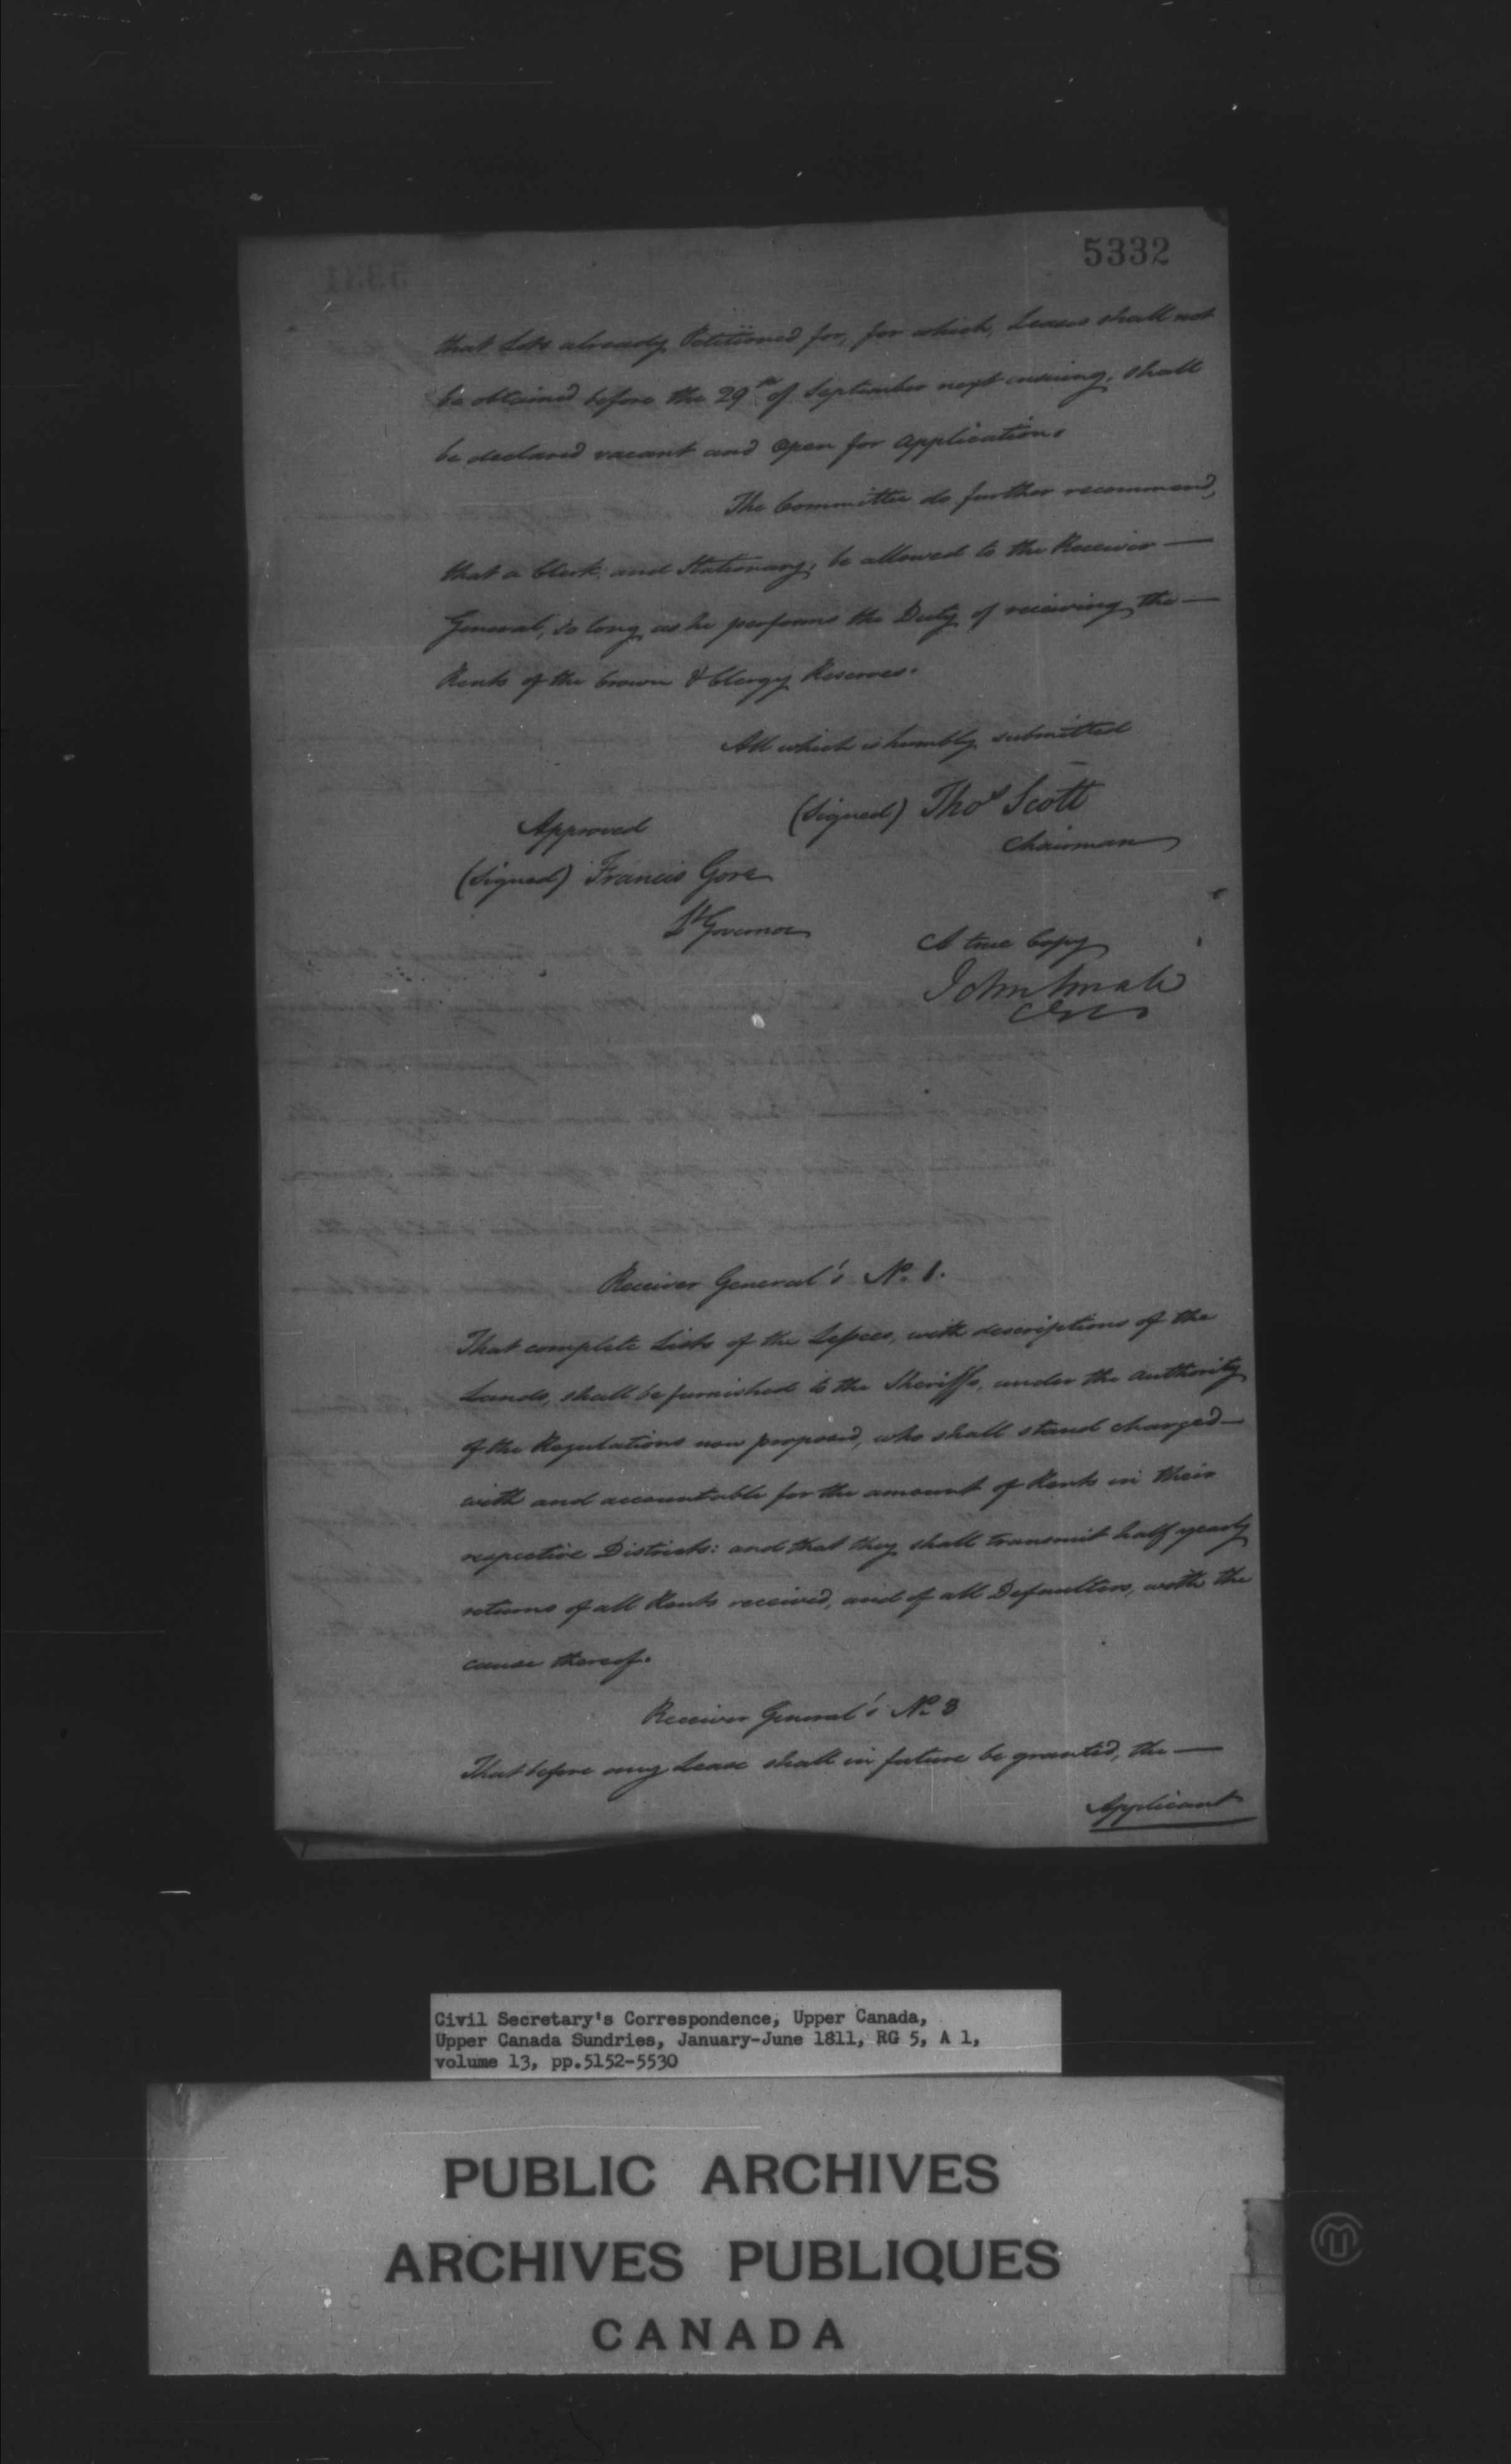 5332
that Lots already Petitioned for, for which, Leases shall not
be obtained before the 29th of September next ensuing, shall
be declared vacant and open for application.
The Committee do further recommend,
that a Clerk, and Stationary, be allowed to the Receiver —
General, so long as he performs the Duty of receiving the —
Rents of the Crown & Clergy Reserves.
All which is humbly submitted
(Signed) Thos Scott
Chairman
Approved
(Signed) Francis Gore
Lt Governor
A true Copy
John Small
Receiver General's No. 1.
That complete Lists of the Lessees, with descriptions of the
Lands, shall be furnished to the Sheriffs, under the authority
of the Regulations now proposed, who shall stand charged —
with and accountable for the amount of Rents in their
respective Districts: and that they shall transmit half yearly
returns of all Rents received, and of all Defaulters, with the
cause thereof.
Receiver General's No 3
That before any Lease shall in future be granted, the —
Applicant
Civil Secretary's Correspondence, Upper Canada,
Upper Canada Sundries, January-June 1811, RG 5, A 1,
volume 13, pp.5152-5530
PUBLIC ARCHIVES
ARCHIVES PUBLIQUES
CANADA